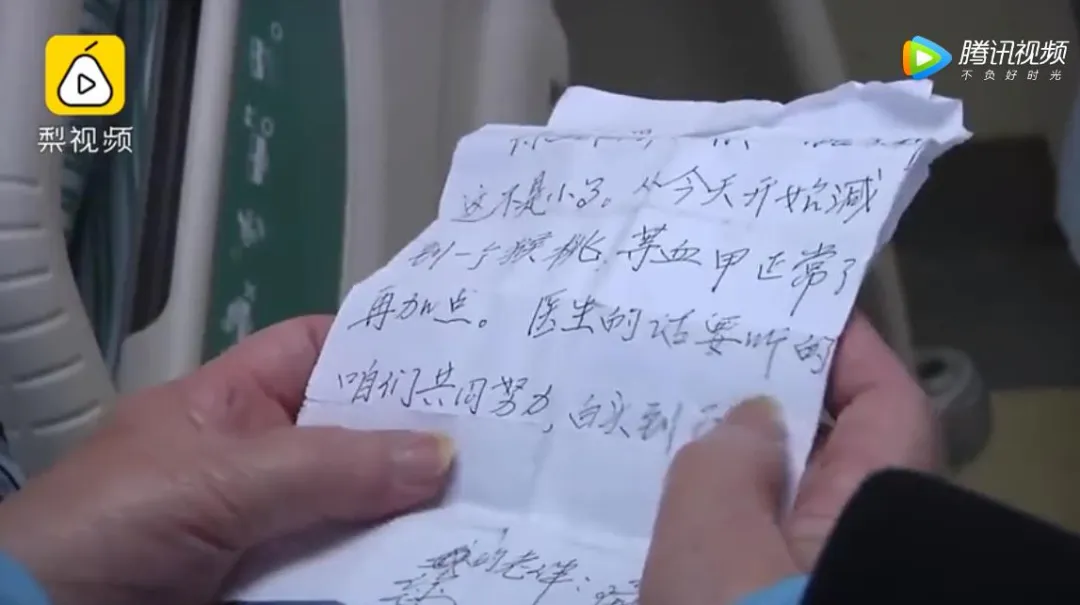 梨视频
腾讯视频
不负好时光
这不是小了。从今天开始减
到一个猴桃,等血甲正常了
再加点。医生的话要听的
咱们共同努力,白头到
的老伴: